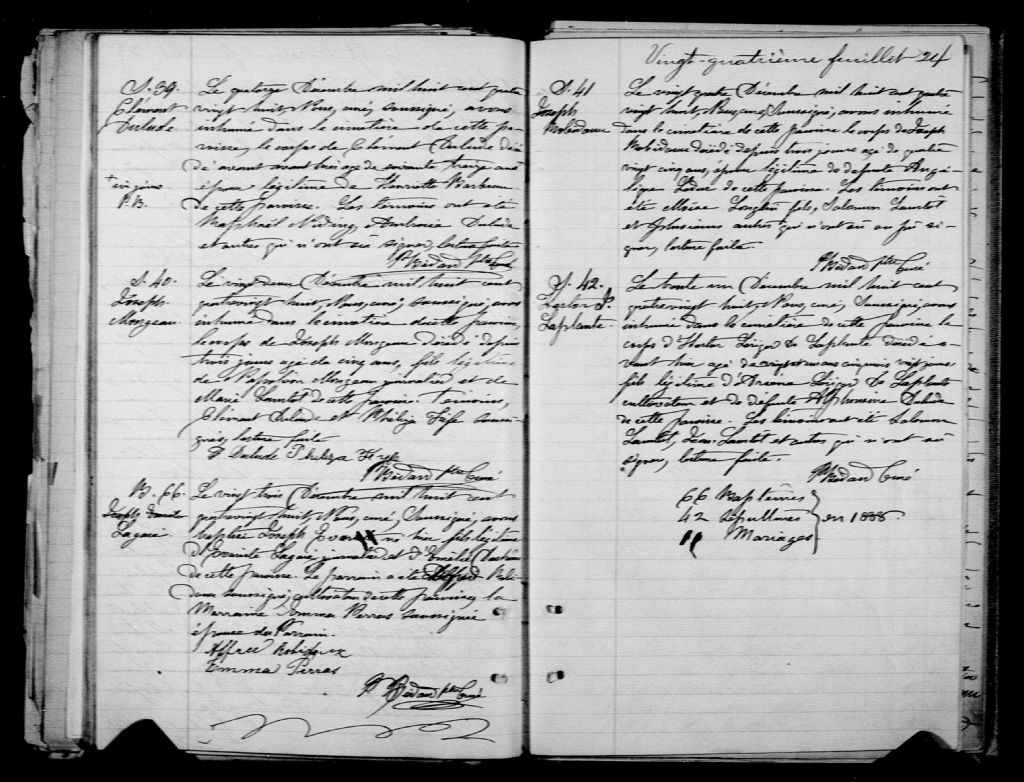 S. 39.
Clément
Dulude
P. B.
Le quatorze Décembre mil huit cent quatre
vingt huit, Nous, curé, soussigné, avons
inhumé dans le cimetière de cette pa-
roisse, le corps de Clément Dulude décé-
dé avant avant hier agé de soixante treize ans
époux légitime de Henriette Barbeau
de cette paroisse. Les témoins ont été
Raphaël Ambroise Dulude
et autres qui n'ont su signer, lecture faite
Bédard ptre Curé
S. 40.
Joseph
Mongeau
Le vingt deux Décembre mil huit cent
quatrevingt huit, Nous, curé, soussigné, avons
inhumé dans le cimetière de cette paroisse,
le corps de Joseph Mongeau décédé depuis
trois jours agé de cinq ans, fils légitime
de Napoléon Mongeau journalier et de
Marie Lanctot de cette paroisse. Témoins,
Clément Dulude et Philiza soussi-
gnés, lecture faite
Dulude Philiza
Bédard ptre Curé
B. 66.
Joseph
Lagacé
Le vingt trois Décembre mil huit cent
quatrevingt huit, Nous, curé, Soussigné, avons
baptisé Joseph né hier fils légitime
d' Lagacé journalier et d'Emélie
de cette paroisse. Le parrain a été Alfred Robi-
doux soussigné, cultivateur de cette paroisse, la
Marraine Emma Perras soussignée
épouse du Parrain.
Alfred Robidoux
Emma Perras
Bédard ptre Curé
Vingt-quatrième feuillet 24
S. 41
Joseph
Robidoux
Le vingt quatre Décembre mil huit cent quatre
vingt huit, Nous, curé, Soussigné, avons inhumé
dans le cimetière de cette paroisse le corps de Joseph
Robidoux décédé depuis trois jours agé de quatre
vingt cinq ans, époux légitime de défunte Angé-
lique de cette paroisse. Les témoins ont
été Moïse Longtin fils, Salomon Lanctot
et plusieurs autres qui n'ont su si-
gner, lecture faite.
Bédard ptre Curé
S. 42.
Hector
Laplante
Le trente un Décembre mil huit cent
quatrevingt huit, Nous, curé, Soussigné, avons
inhumé dans le cimetière de cette paroisse le
corps d'Hector Laplante décédé a-
vant hier agé de cinq mois vingt jours
fils légitime d' Laplante
cultivateur et de défunte Alphonsine Dulude
de cette paroisse. Les témoins ont été Salomon
Lanctot, Jean Lanctot et autres qui n'ont su
signer, lecture faite.
Bédard Curé
66 Baptêmes
42 sépultures en 1888.
11 Mariages